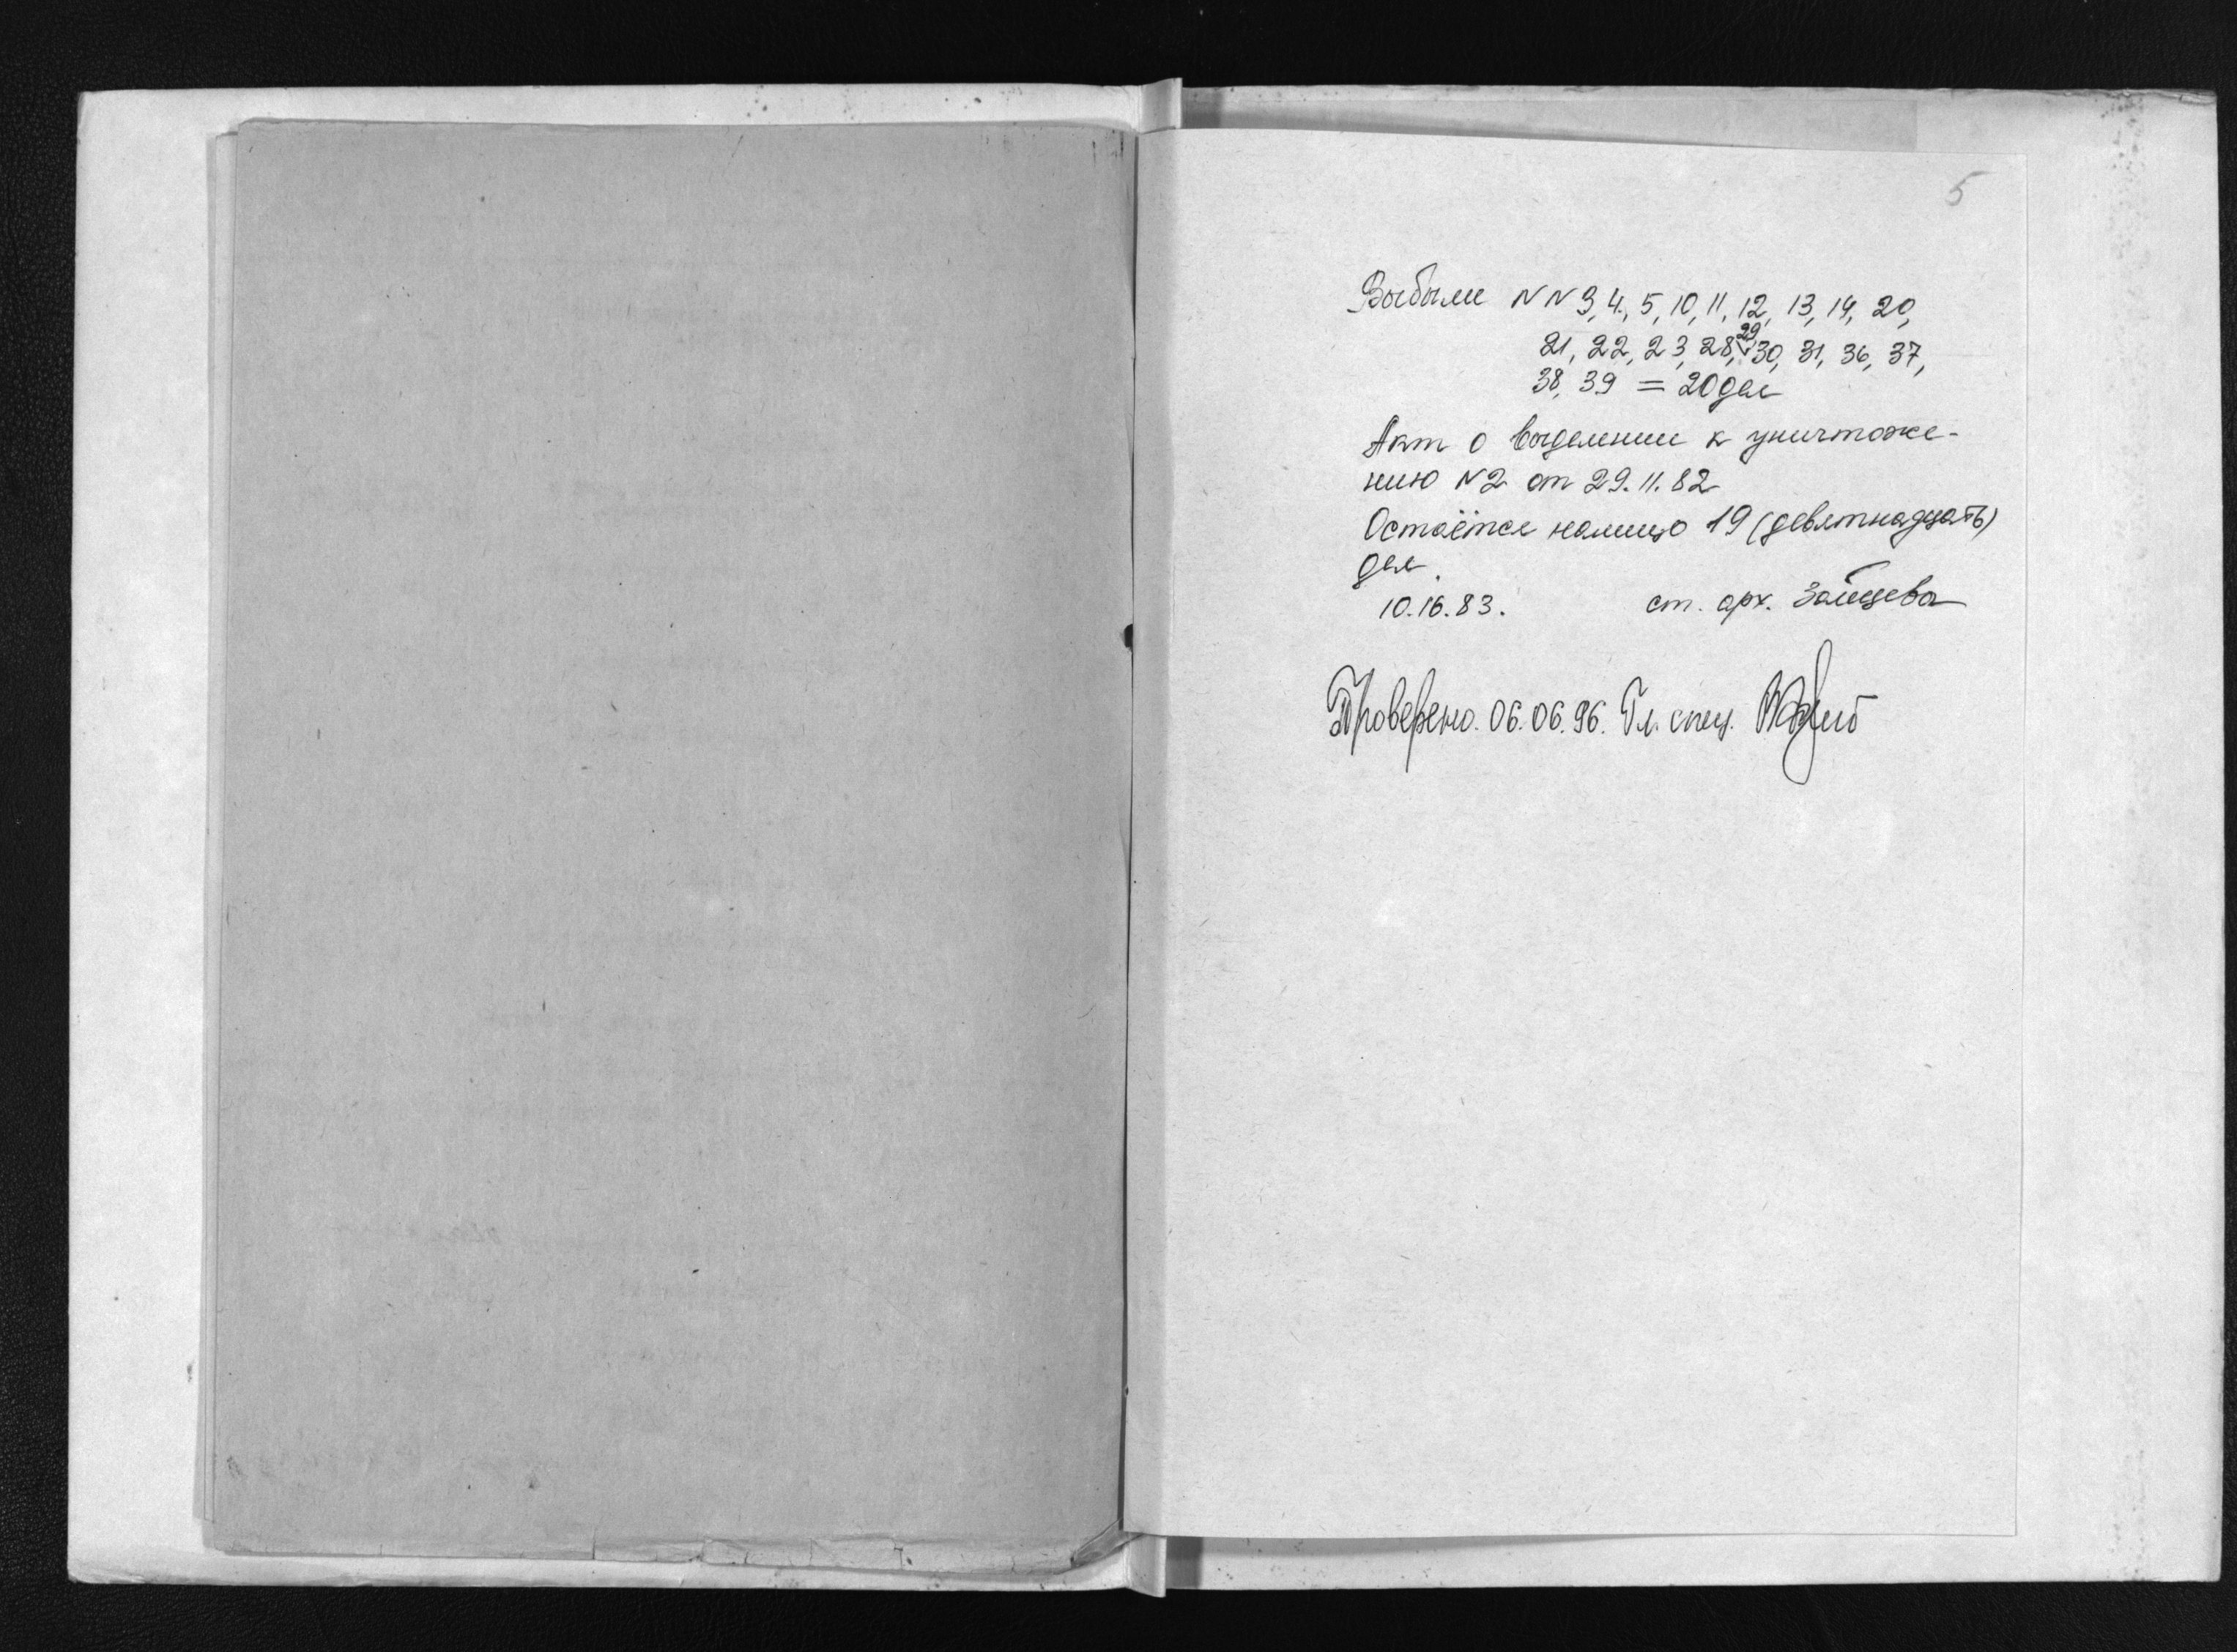 5
Выбыли NN 3, 4, 5, 10, 11, 12, 13, 14, 20,
21, 22, 23, 28, 29, 30, 31, 36, 37,
38, 39 = 20 дел
Акт о выделении к уничтоже-
нию N2 от 29.11.82
Остаётся налицо 19 (девятнадцать)
дел.
10.16.83. ст. арх. Зайцева
Проверено. 06.06.96. Гл. спец.